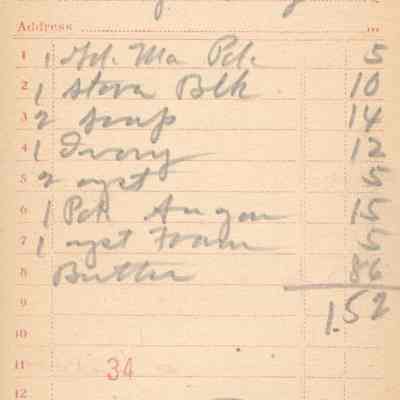 Address
1 1 Pck. 5
2 1 Stove Blk 10
3 2 Soap 14
4 1 Ivory 12
5 2 yst 5
6 1 Pck 15
7 1 yst Foam 5
8 Butter 86
9 1.52
10
11 34
12